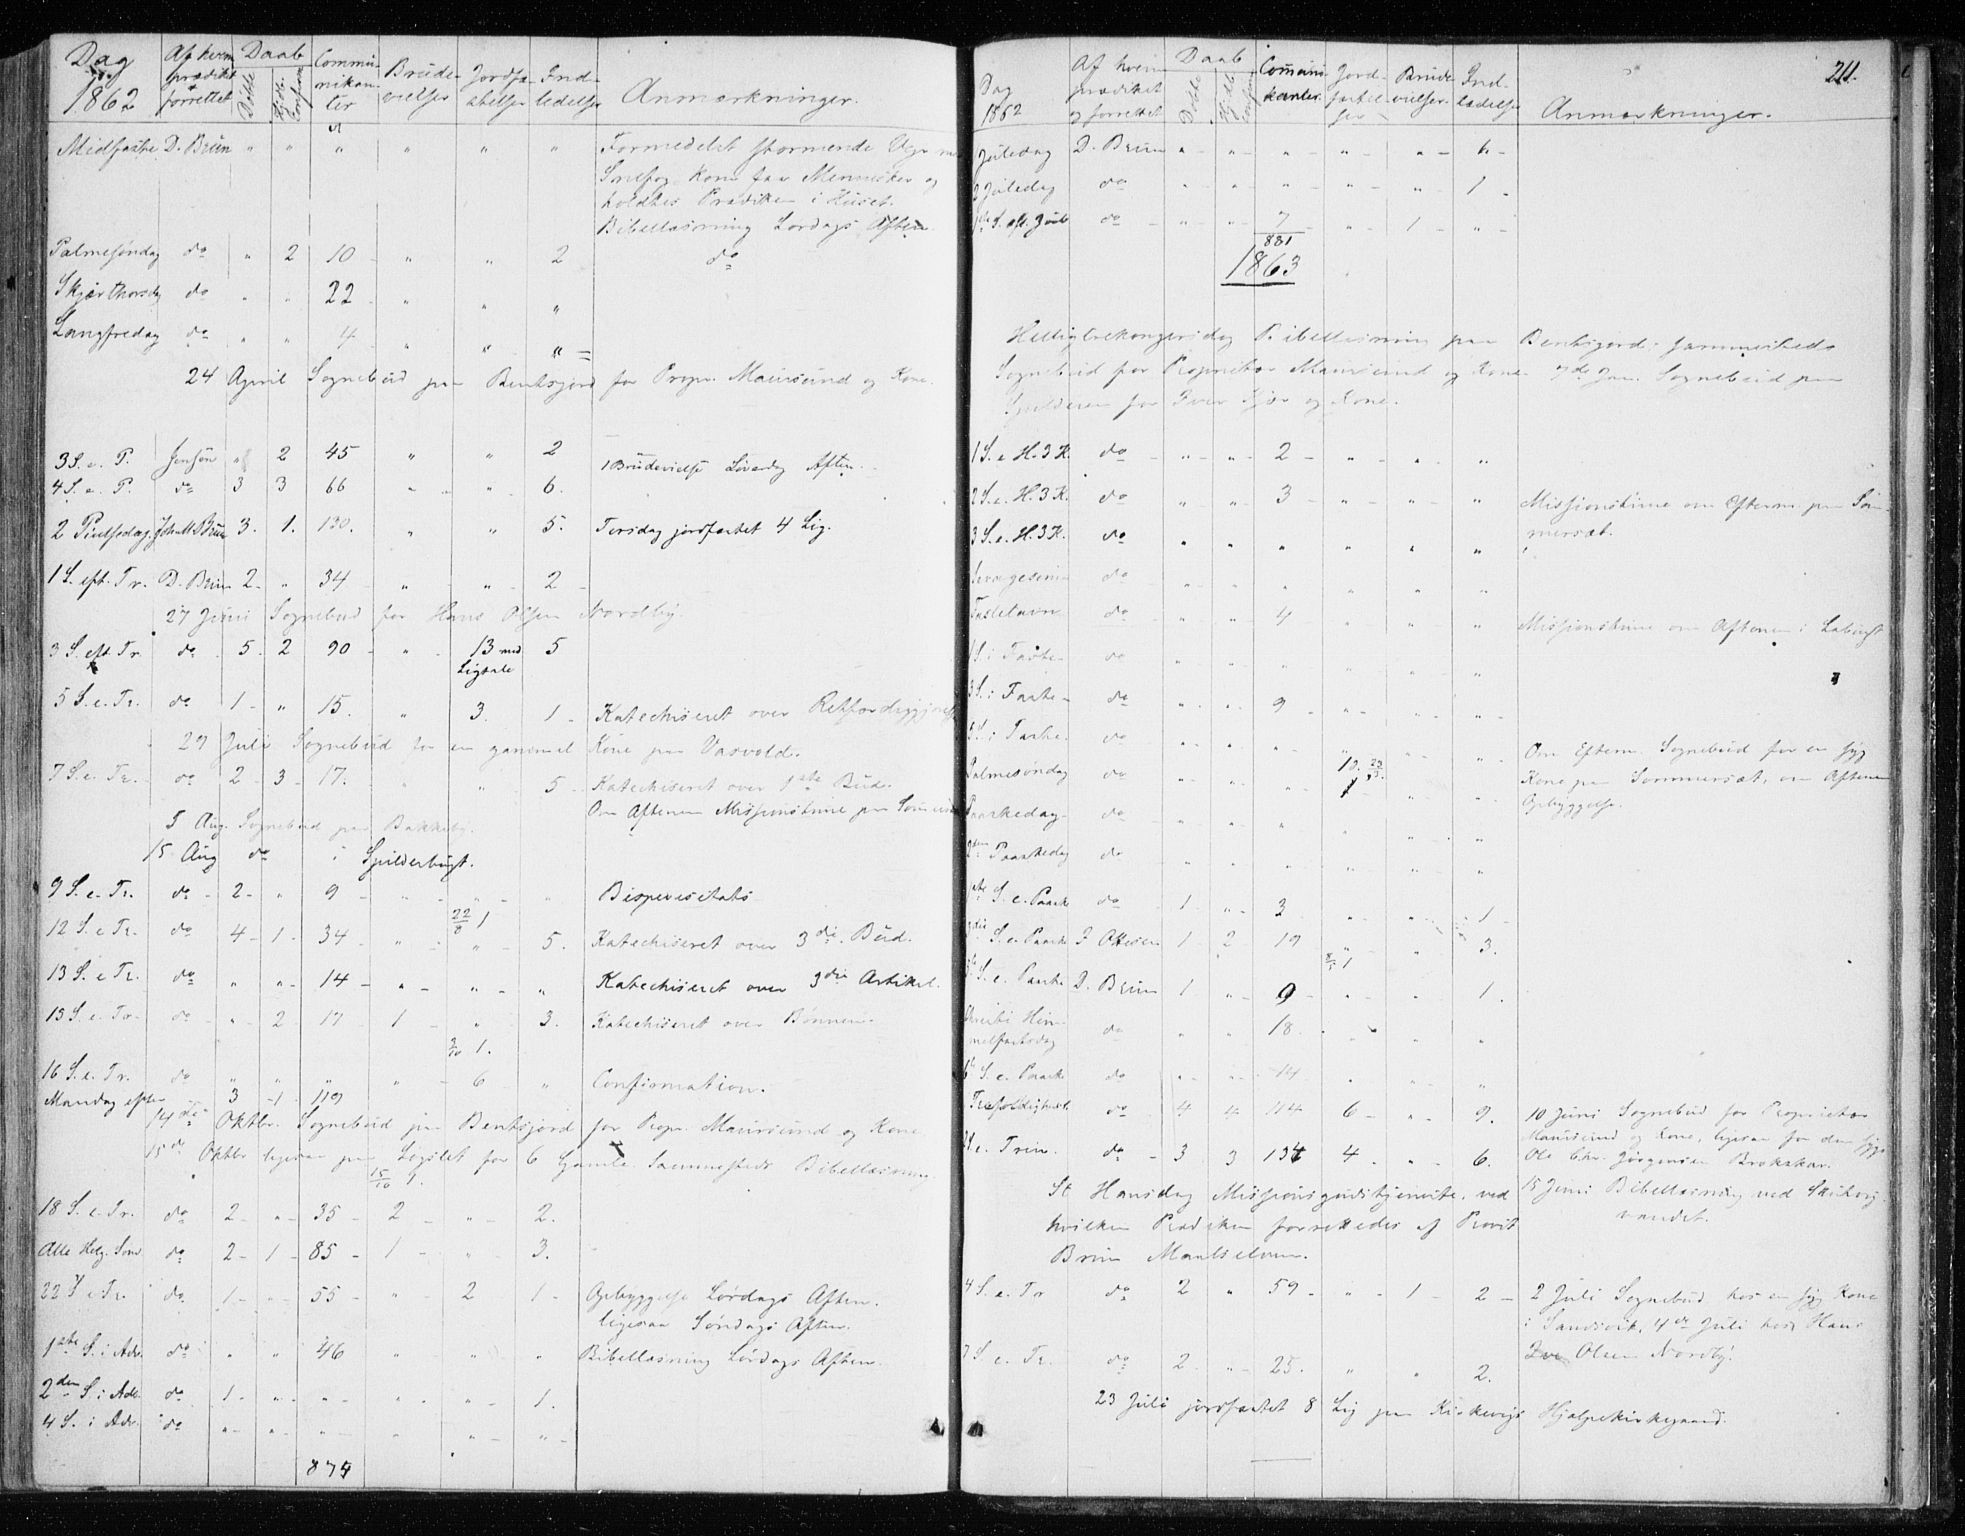 Dag
1862
Af hvem
prædiket
forrettet
Daab
Døbte
Hjdb. Confirm
Commu-
nikan-
ter
Brude-
vielser
Jordfæ-
stelser
Ind-
ledelser
Anmærkninger.
Midfaste D. Brun " " " " " " Formedelst stormende Veir
Snefog kom faa Mennesker og
holdtes Prædiken i Huset.
Bibellæsning Lørdags Aften.
Palmesøndag do " 2 10 " " 2 do
Skjærthorsdag do " " 22 " " "
Langfredag do " " 4 " " "
24 April Sognebud paa Bentsjord for Propr. Maursund og Kone.
3 S. e. P. Jensen " 2 45 " " 2 1 Brudevielse Løverdag Aften.
4 S. e. P. do 3 3 66 " " 6.
2 Pindsedag. Joh. M. Brun 3. 1. 130. " " 5. Torsdag jordfæstet 4 Lig.
1 S. eft. Tr. D. Brun 2 " 34 " " 2
27 Juni Sognebud for Hans Olsen Nordby.
3 S. eft. Tr. do 5 2 90 " 13 med 5
Ligtale
5 S. e. Tr. do 1 " 15. " 3. 1 Katechiseret over Retfærdiggjørelse
29 Juli Sognebud for en gammel Kone paa Vasvold.
7 S. e. Tr. do 2 3 17. " " 5 Katechiseret over 1ste Bud.
Om Aftenen Missionstime paa
5 Aug. Sognebud paa Bakkeby.
15 Aug do i Spilderbugt.
9 S. e. Tr. do 2 " 9 " " " Bispevisitats
22/8 1
12 S. e. Tr. do 4 1 34 " " 5. Katechiseret over 3die Bud.
13 S. e. Tr. do " " 14 " " " Katechiseret over 3die Artikel.
15 S. e. Tr. do " 2 17 1 " 3. Katechiseret over Bønnen.
1.
16 S. e. Tr. do " " " " 6 " Confirmation.
Mandag efter 3 1 119
14de Oktbr. Sognebud paa Bentsjord for Propr. Maursund og Kone
15de Oktbr ligesaa paa for 6 Gamle. Sammesteds Bibellæsning.
15/10 1.
18 S. e. Tr. do 2 " 35 2 " 2.
Alle Helg. Sønd do 2 1 85 1 " 3.
22 S. e. Tr. do 1 " 55 " 2 1 Opbyggelse Lørdags Aften.
ligesaa Søndags Aften.
1ste S. i Adv. do " " 46 " " " Bibellæsning Lørdags Aften.
2den S. i Adv. do 1 " " " " 1.
4 S. i Adv. do " " " " " "
874
211.
Dag
1862
Af hvem
prædiket
og forrettet
Daab
Døbte
Hjdb. Confirm
Commu-
kanter
Jord-
fæstel-
ser
Brude-
vielser.
Ind-
ledelser
Anmærkninger.
Juledag D. Brun " " " " " 6
3 Juledag do " " " " " 1
1ste S. eft. Jul do " " 7 " 1 "
881
1863
Helligtrekongersdag Bibellæsning paa Bentsjord. sammesteds
Sognebud for Proprietær Maursund og Kone. 7de Jan. Sognebud paa
Spilderen for Iver Kjær og Kone.
1 S. e. H. 3 K. do " " 2 " " "
2 S. e. H. 3 K. do " " 3 " " " Missionstime om Efterm. paa Som-
mersæt.
3 S. e. H. 3 K. do " " " " " "
do " " " " " "
Fastelavn do " " 4 " " " Missionstime om Aftenen i
1 S. i Faste do " " " " " "
3 S. i Faste do " " 9 " " "
5 S. i Faste. do " " " " " " Om Efterm. Sognebud for en syg
Kone paa Sommersæt, om Aftenen
Opbyggelse.
Palmesøndag do " " " 1 " "
Paaskedag do " " " " " "
2den Paaskedag do " " " " " "
1ste S. e. Paaske do 1 " 3 " " 1
3die S. e. Paaske J Ottesen 1 2 19 " " 3.
1
S. e. Paaske D. Brun 1 " 9 " " 1.
Christi Him-
melfartsdag do " " 18. " " "
6te S. e. Paaske do " " 14 " " "
Trefoldighedsf. do 4 4 114 6 " 9. 10 Juni Sognebud for Proprietær
Maursund og Kone, ligesaa for den syge
Ole Chr. Jørgensen Brokskar.
2 S. e. Trin. do 3 3 134 4 " 6.
15 Juni Bibellæsning ved
vandet.
St Hansdag Missionsgudstjeneste, ved
hvilken Prædiken forrettedes af Provst
Brun Maalselven.
4 S. e. Tr do 2 " 59 " 1 2 2 Juli Sognebud hos en syg Kone
i Sandsvik, 4de Juli hos Hans
Olsen Nordby.
7 S. e. Tr. do 2 " 25. " " 2.
23 Juli jordfæstet 8 Lig paa Kirkevigs Hjælpekirkegaard.